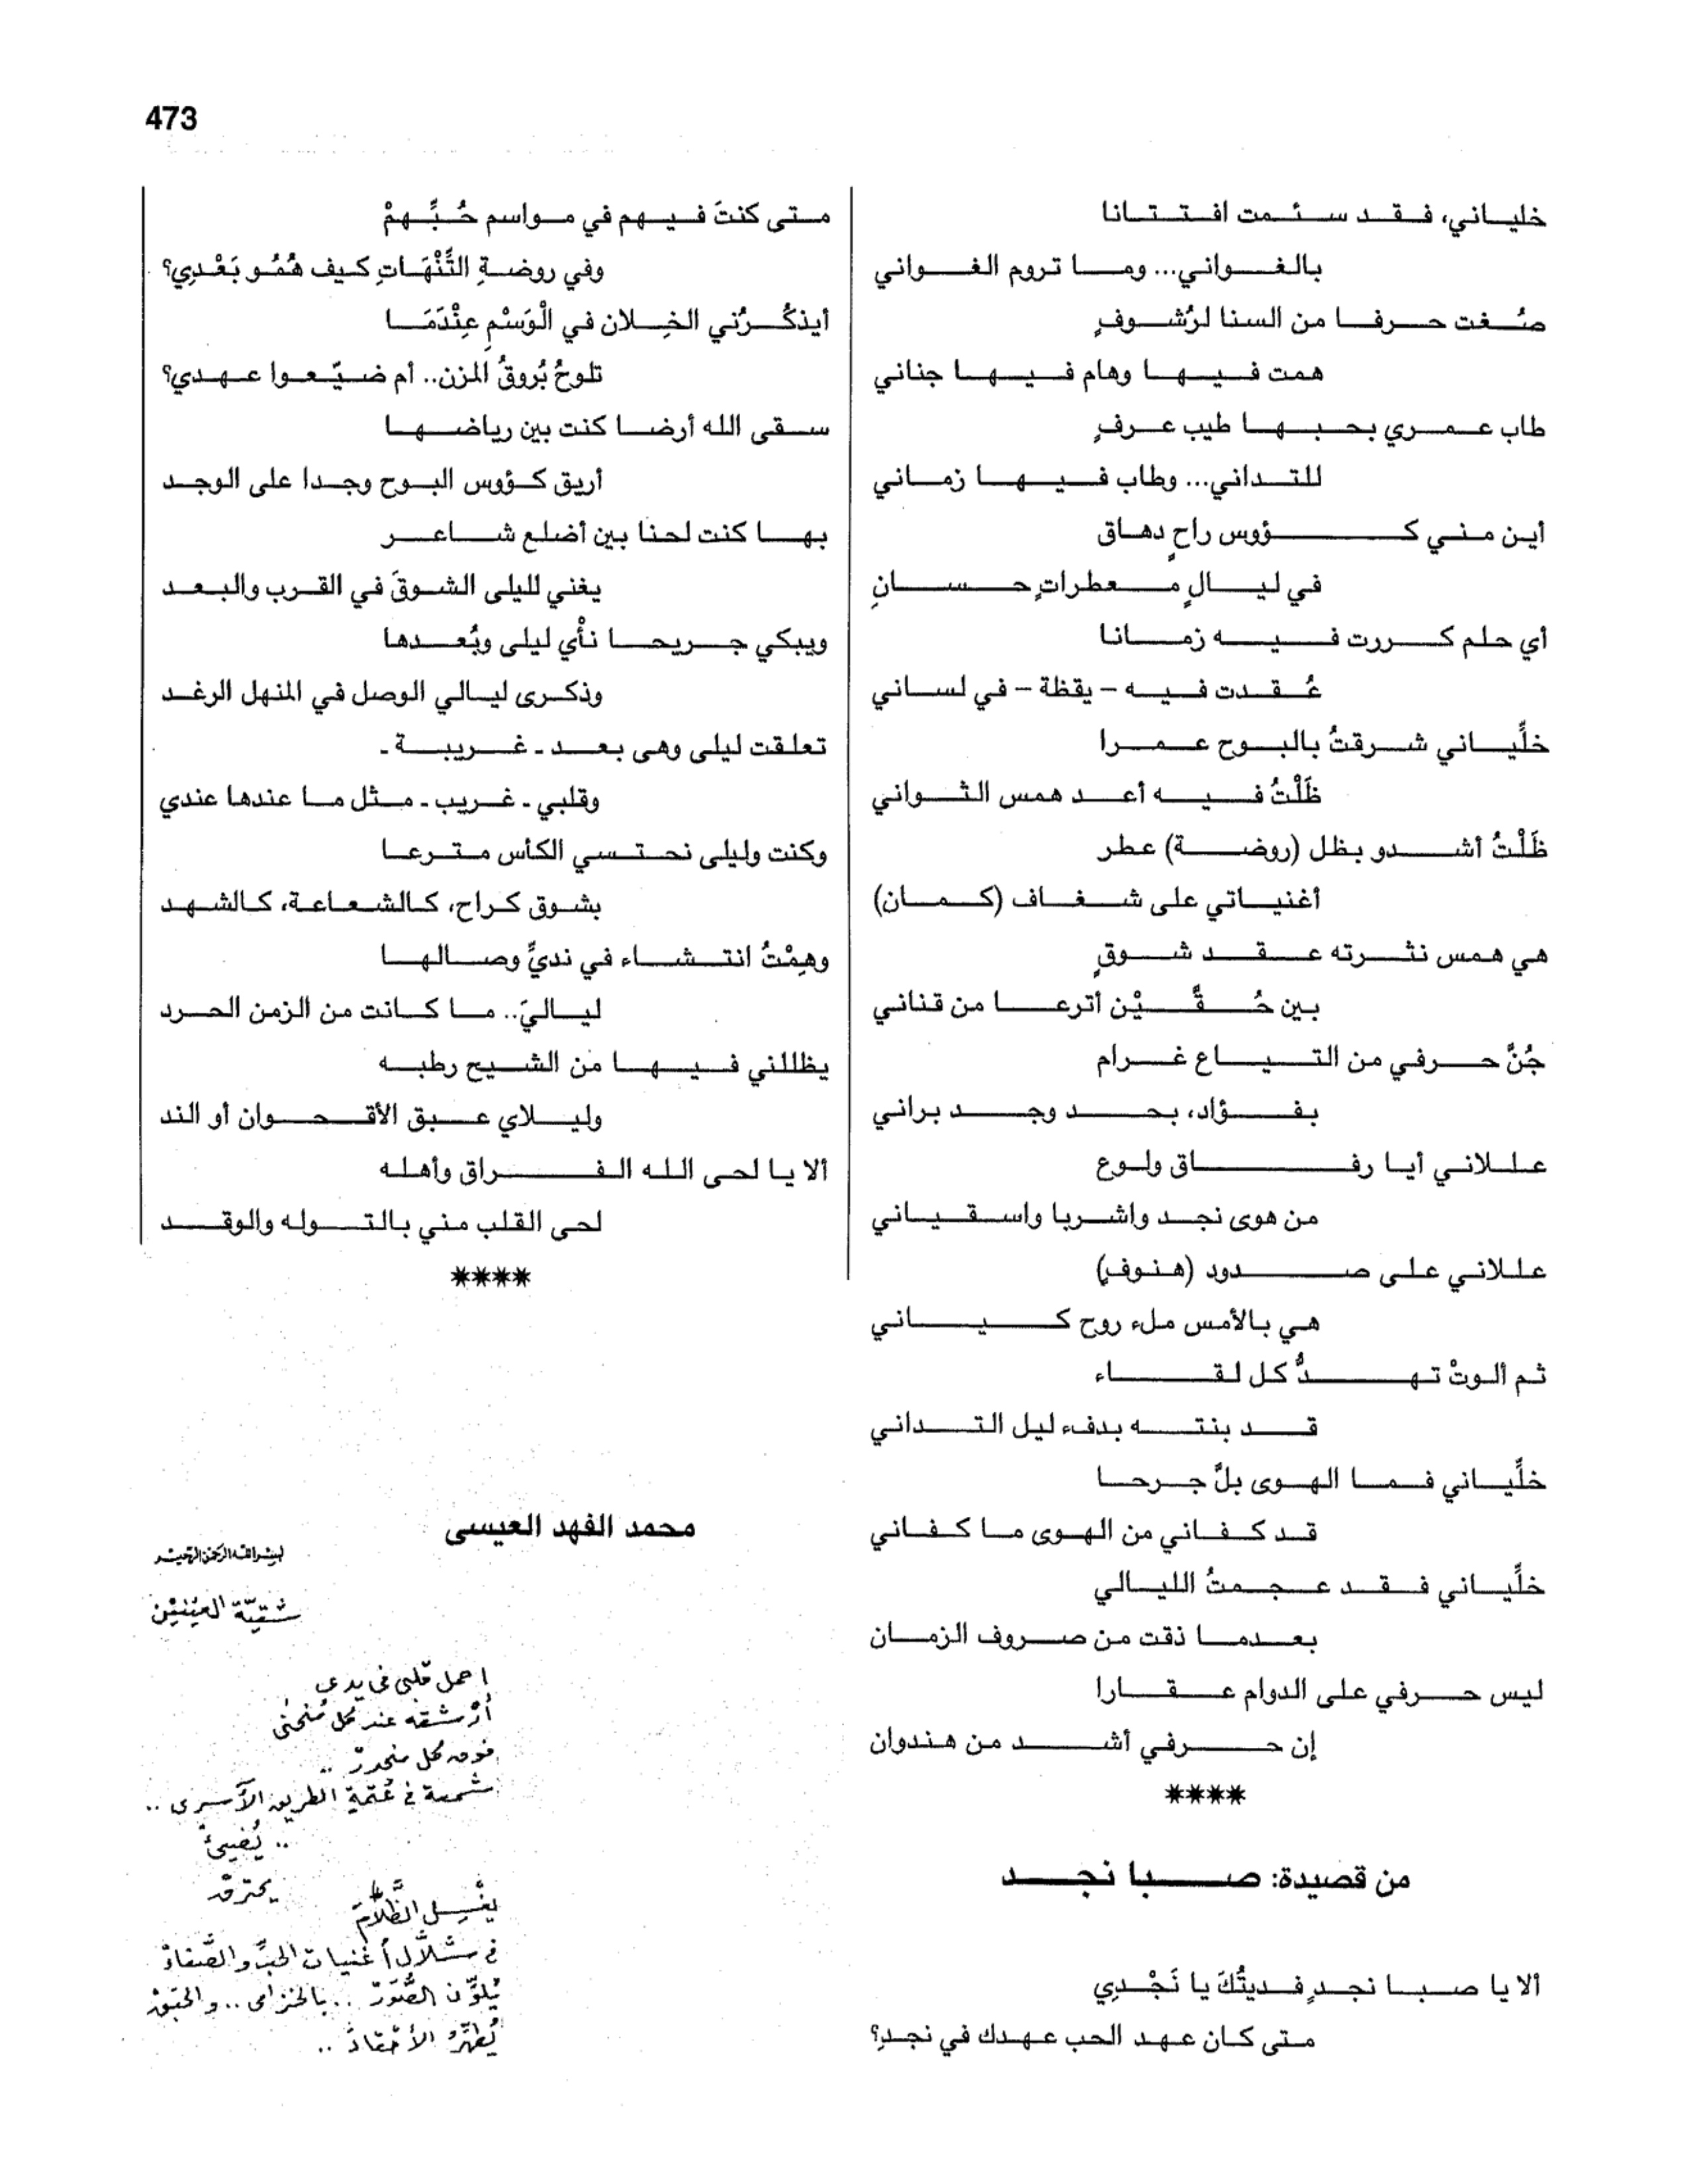 473
خليانى، فقد سئمت افتتانا
بالغواني... وما تروم الغواني
صُغت حرفا من السنا لرُشوفٍ
همت فيها وهام فيها جناني
طاب عمري بحبها طيب عرفٍ
للتداني... وطاب فيها زماني
أين مني كؤوس راحٍ دهاق
في ليالٍ معطراتٍ حسانِ
أي حلم كررت فيه زمانا
عُقدت فيه - يقظة - في لساني
خلِّياني شرقتُ بالبوح عمرا
ظَلْتُ فيه أعد همس الثواني
ظَلْتُ أشدو بظل (روضة) عطر
أغنياتي على شغاف (كمان)
هي همس نثرته عقد شوقٍ
بين حُقَّيْن أترعا من قناني
جُنَّ حرفي من التياع غرام
بفؤاد، بحد وجد براني
عللاني أيا رفاق ولوع
من هوى نجد واشربا واسقياني
عللاني على صدود (هنوفٍ)
هي بالأمس ملء روح كياني
ثم ألوتْ تهدُّ كل لقاء
قد بنته بدفء ليل التداني
خلِّياني فما الهوى بلَّ جرحا
قد كفاني من الهوى ما كفاني
خلِّياني فقد عجمتُ الليالي
بعدما ذقت من صروف الزمان
ليس حرفي على الدوام عقارا
إن حرفي أشد من هندوان
****
من قصيدة: صبا نجد
ألا يا صبا نجدٍ فديتُكَ يا نَجْدِي
متى كان عهد الحب عهدك في نجدِ؟
متى كنتَ فيهم في مواسم حُبِّهمْ
وفي روضةِ التَّنْهَاتِ كيف هُمُو بَعْدِي؟
أيذكُرُني الخِلان في الْوَسْمِ عِنْدَمَا
تلوحُ بُروقُ المزن.. أم ضيّعوا عهدي؟
سقى الله أرضا كنت بين رياضها
أريق كؤوس البوح وجدا على الوجد
بها كنت لحنا بين أضلع شاعر
يغني لليلى الشوقَ في القرب والبعد
ويبكي جريحا نأْي ليلى وبُعدها
وذكرى ليالي الوصل في المنهل الرغد
تعلقت ليلى وهى بعد ـ غريبة ـ
وقلبي ـ غريب ـ مثل ما عندها عندي
وكنت وليلى نحتسي الكأس مترعا
بشوق كراح، كالشعاعة، كالشهد
وهِمْتُ انتشاء في نديِّ وصالها
لياليَ.. ما كانت من الزمن الحرد
يظللني فيها من الشيح رطبه
وليلاي عبق الأقحوان أو الند
ألا يا لحى الله الفراق وأهله
لحى القلب مني بالتوله والوقد
****
محمد الفهد العيسى
بسم الله الرحمن الرحيم
شقيّة العينين
احمل قلبي في يدي
أرشقه عند كل مُنحنى
فوق كل منحدر ..
شمعة في عُتمةِ الطريق الأسرى ..
.. يُضيئ
يحترق
يغسل الظَّلامَ
في شلَّال أغنيات الحبِّ والصَّفاءْ
يُلوِّن الصُّوَرْ .. بالخزامى .. والحبَقْ
يُطهِّرُ الأحقادْ ..